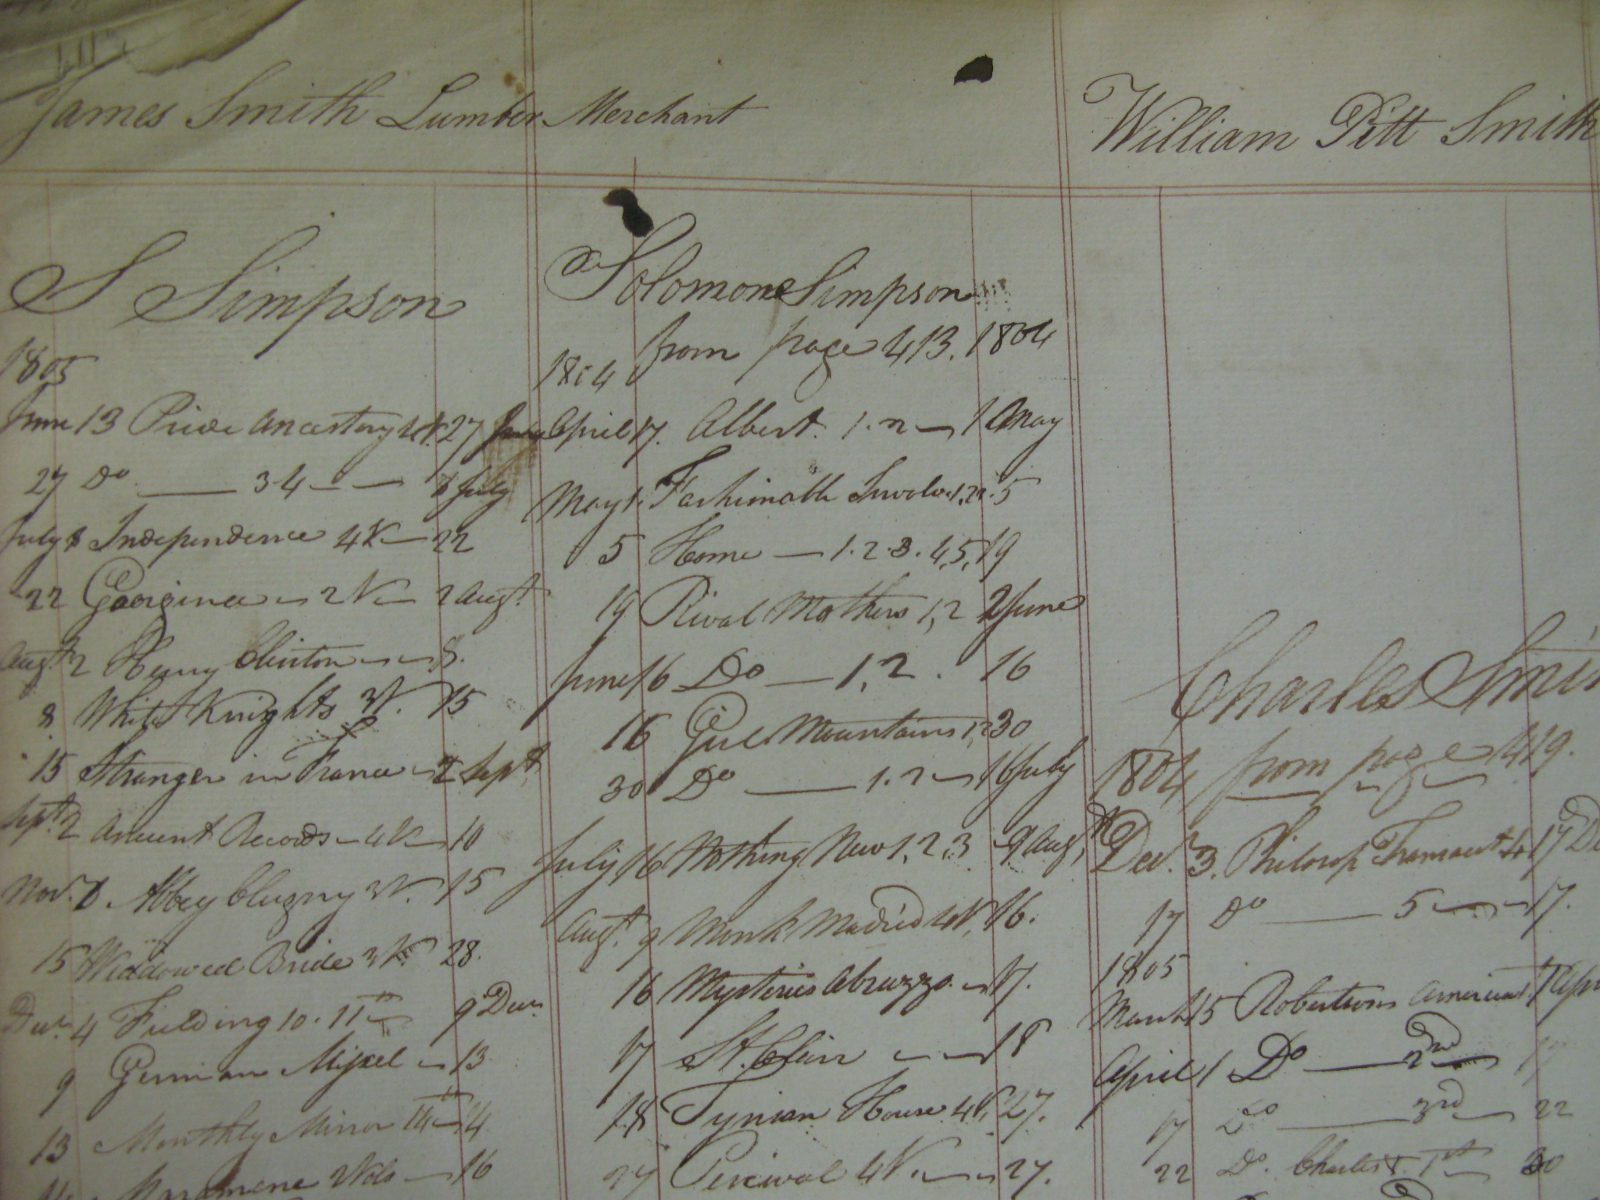 James Smith Lumber Merchant
William Pitt Smith
S Simpson
1805
June 13 Pride Ancestory 27
27 Do 34 8 July
July 8 Independence 4V 22
22 Georgina 2V 2 Augt
Augt 2 Henry Clinton 8.
8 White Knights 3V. 15
15 Stranger in France 2 Sept
Sept 2 Ancient Records 4V 10
Novr. 8 Abbey Clugny 3V. 15
15 Widdowed Bride 3V. 28.
Decr. 4 Fielding 10. 11th 9 Decr
9 German 13
13 Monthly Mirror 14
2 Vols 16
Solomon Simpson
from page 413. 1804
1804
April 17. Albert. 1. 2 1 May
May 1. Fashionable 1,2. 5
5 Home 1. 2. 3. 4,5, 19
19 Rival Mothers 1,2 2 June
June 16 Do 1, 2. 16
16 Mountains 1,2 30
30 Do 1. 2 16 July
July 16 Nothing New 1, 2, 3 9 Augt
Augt. 9 Monk Madrid 4V. 16.
16 Mysteries Abruzzo 17.
17 St. Clair 18
18 Tynian House 4V. 27.
27 Percival 4V. 27.
Charles
1804 from page 419.
Decr. 3. Philosop Transact 4 17 De
17 Do 5 17.
1805
March 15 Robertsons America 1 Apr
April 1 Do 2nd 17
17 Do 3rd 22
22 Do. Charles 1st 30